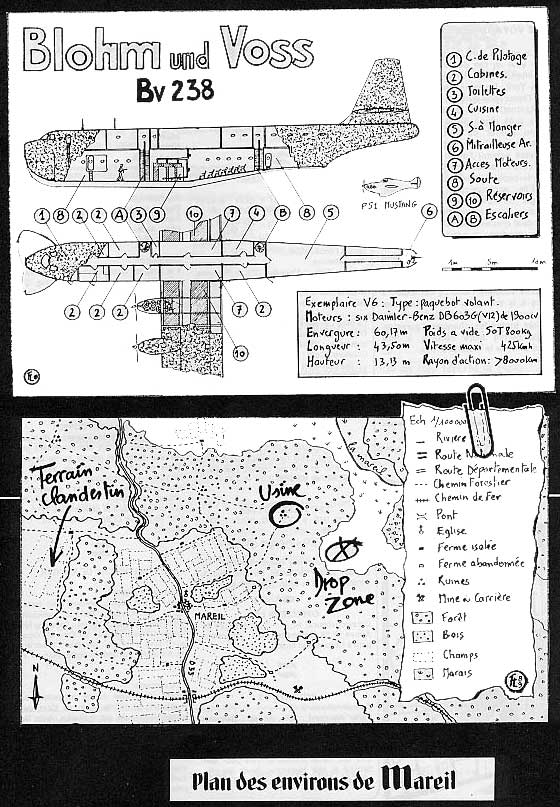 Blohm und Voss
Bv 238
1 C. de Pilotage
2 Cabines.
3 Toilettes
4 Cuisine
5 S. à Manger
6 Mitrailleuse Ar.
7 Acces Moteurs.
8 Soute
9 10 Réservoirs
A B Escaliers
P51 MUSTANG
1 8 2 2 A 3 9 10 7 4 B 8 5 6
2 2 2 7 2
10
1m 5m 10m
Exemplaire V6 : Type : paquebot volant.
Moteurs : six Daimler-Benz DB603G (V12) de 1900cv
Envergure : 60,17 m Poids a vide 50T800kg
Longueur : 43,50m Vitesse maxi 425kmh
Hauteur : 13,13 m Rayon d'action : >8000km
Terrain
clandestin
Usine
Drop
Zone
MAREIL
la Mareil
N
Ech 1/100000
Rivière
Route Nationale
Route Départementale
Chemin Forestier
Chemin de Fer
Pont
Eglise
Ferme isolée
Ferme abandonnée
Ruines
Mine ou Carrière
Forêt
Bois
Champs
Marais
Plan des environs de Mareil